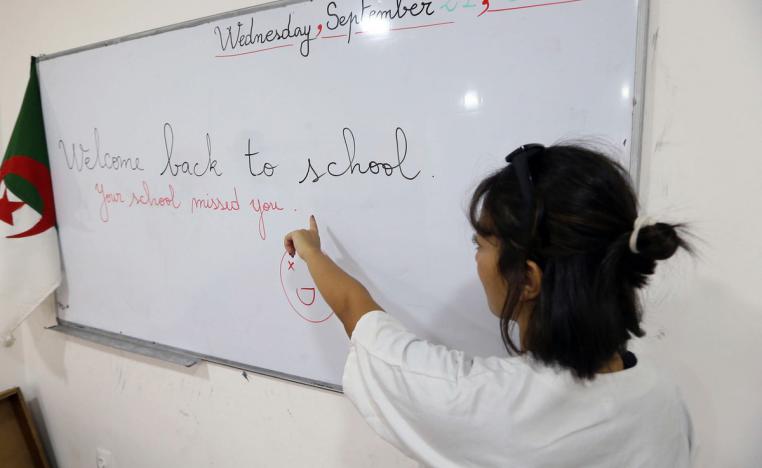 Wednesday, September 21,
Welcome back to school.
Your school missed you.